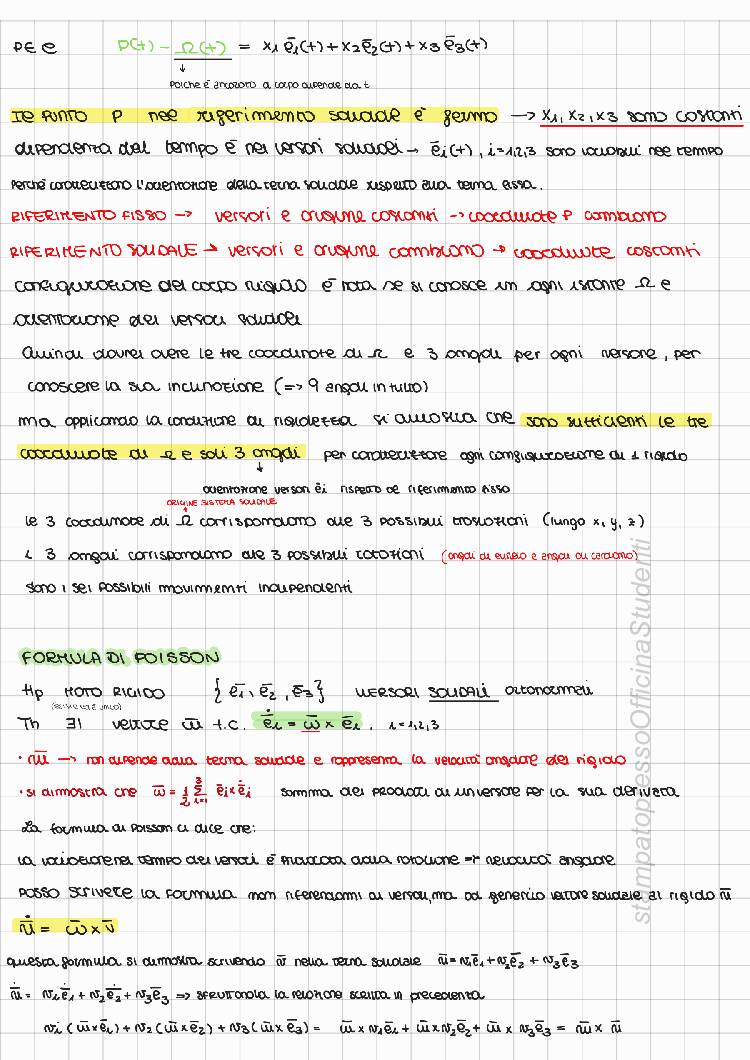 P ∈ C   P(t) - Ω(t) = x1 ē1(t) + x2 ē2(t) + x3 ē3(t)
↓
poiché è ancorato al corpo dipende da t
Il PUNTO P nel riferimento solidale è fermo → x1, x2, x3 sono costanti
dipendenza dal tempo è nei versori solidali → ēi(t), i=1,2,3 sono variabili nel tempo
perché caratterizzano l'orientazione della terna solidale rispetto alla terna fissa.
RIFERIMENTO FISSO → versori e origine costanti → coordinate P cambiano
RIFERIMENTO SOLIDALE → versori e origine cambiano → coordinate costanti
configurazione del corpo rigido è nota se si conosce in ogni istante Ω e
orientazione dei versori solidali
Quindi dovrei avere le tre coordinate di Ω e 3 angoli per ogni versore, per
conoscere la sua inclinazione (=> 9 angoli in tutto)
ma applicando la condizione di rigidezza si dimostra che sono sufficienti le tre
coordinate di Ω e soli 3 angoli per caratterizzare ogni configurazione di 1 rigido
↓
orientazione versori ēi rispetto al riferimento fisso
ORIGINE SISTEMA SOLIDALE
le 3 coordinate di Ω corrispondono alle 3 possibili traslazioni (lungo x, y, z)
i 3 angoli corrispondono alle 3 possibili rotazioni (angoli di eulero e angoli di cardano)
sono i sei possibili movimenti indipendenti
FORMULA DI POISSON
Hp MOTO RIGIDO { ē1, ē2, ē3 } VERSORI SOLIDALI ortonormali
(esiste ed è unico)
Th ∃! vettore ω̄ t.c. ē̇i = ω̄ × ēi, i=1,2,3
• ω̄ → non dipende dalla terna solidale e rappresenta la velocità angolare del rigido
• si dimostra che ω̄ = 1/2 Σ³i=1 ēi × ē̇i somma dei prodotti di un versore per la sua derivata
La formula di Poisson ci dice che:
la variazione nel tempo dei versori è provocata dalla rotazione → velocità angolare
posso scrivere la formula non riferendomi ai versori, ma ad generico vettore solidale al rigido v̄
v̄̇ = ω̄ × v̄
questa formula si dimostra scrivendo v̄ nella terna solidale v̄ = v1ē1 + v2ē2 + v3ē3
v̄̇ = v1ē̇1 + v2ē̇2 + v3ē̇3 => sfruttando la relazione scritta in precedenza
v1 (ω̄×ē1) + v2 (ω̄×ē2) + v3 (ω̄×ē3) = ω̄ × v1ē1 + ω̄ × v2ē2 + ω̄ × v3ē3 = ω̄ × v̄
stampatopessoOfficinaStudenti